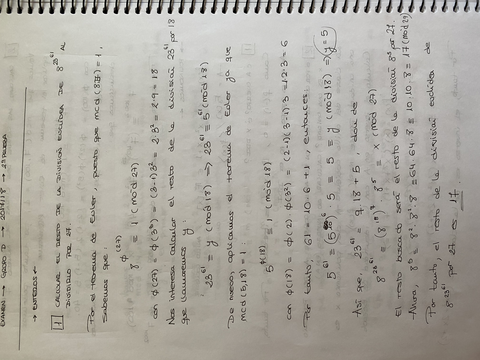 EXAMEN → GRADO D → 2017/18 → 2ª PRUEBA
→ ENTEROS ←
1 CALCULAR EL RESTO DE LA DIVISIÓN EUCLÍDEA DE 8^23^61 AL
DIVIDIRLO POR 27.
Por el teorema de Euler, puesto que mcd(8,27) = 1,
sabemos que:
8^φ(27) ≡ 1 (mod 27)
con φ(27) = φ(3³) = (3-1)3² = 2·3² = 2·9 = 18
Nos interesa calcular el resto de la división 23^61 por 18
que llamaremos y:
23^61 ≡ y (mod 18) ⇒ 23^61 ≡ 5^61 (mod 18)
De nuevo, aplicamos el teorema de Euler ya que
mcd(5,18) = 1:
5^φ(18) ≡ 1 (mod 18)
con φ(18) = φ(2)·φ(3²) = (2-1)(3-1)·3 = 1·2·3 = 6
Por tanto, 61 = 10·6 + 1, entonces:
5^61 = (5^6)^10 · 5 ≡ 5 ≡ y (mod 18) ⇒ y = 5
Así que, 23^61 = q·18 + 5, donde
8^23^61 = (8^18)^q · 8^5 ≡ x (mod 27)
El resto buscado será el resto de la división 8^5 por 27.
Mira, 8^5 = 8²·8²·8 = 64·64·8 ≡ 10·10·8 ≡ 17 (mod 27)
Por tanto, el resto de la división euclídea de
8^23^61 por 27 es 17